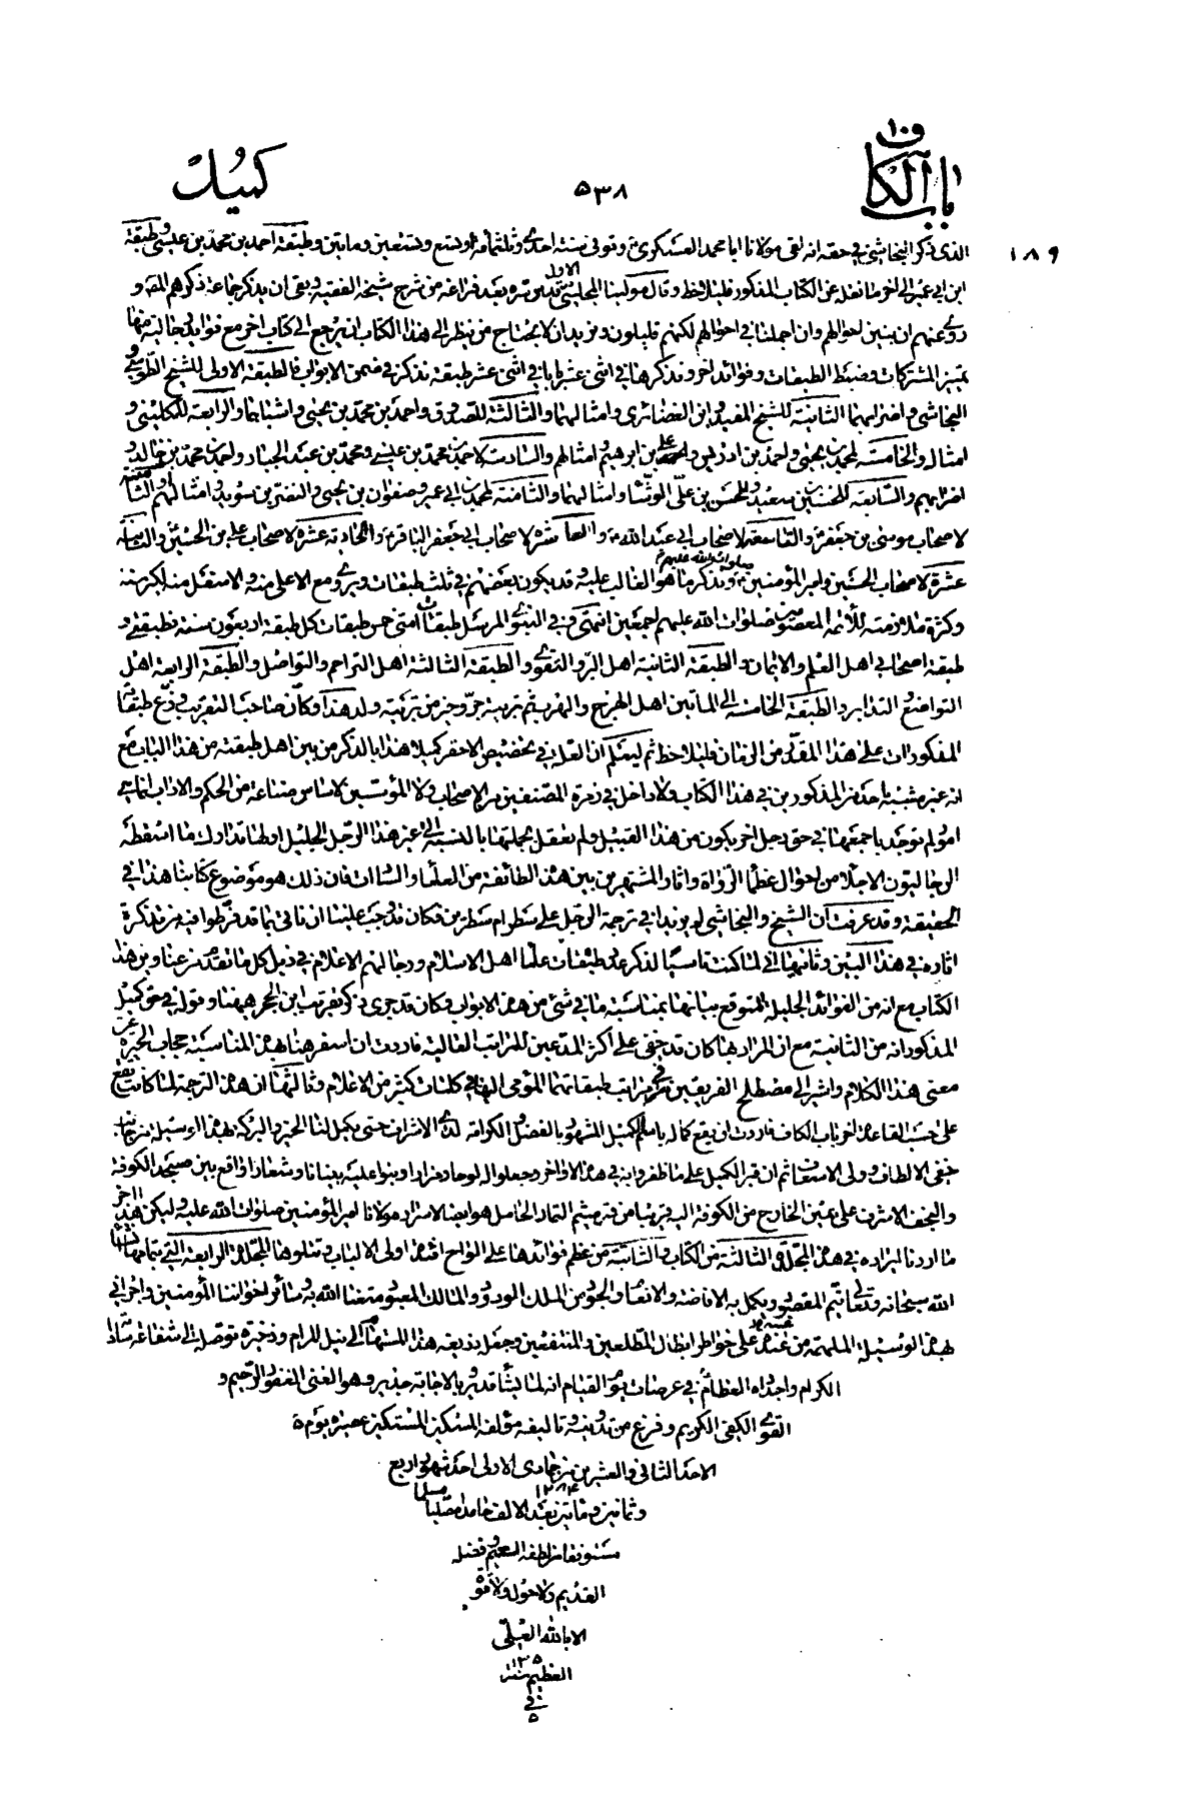 باب الكاف
٥٣٨
كميل
١٨٩
الذى ذكر النجاشى فى حقه انه لقى مولانا ابا محمد العسكرى وتوفى سنة احدى وثلثمائة او تسع وتسعين ومايتين وطبقة احمد بن محمد بن عيسى وطبقة
ابن ابى عمير الى اخر ما نقله عن الكتاب المذكور فليلاحظ وقال مولينا المجلسى الاول قدس سره بعد فراغه من شرح مشيخة الفقيه وبقى ان يذكر جماعة ذكرهم المص و
روى عنهم ان يبين احوالهم وان اجملنا فى احوالهم لكنهم قليلون ونريد ان لا يحتاج من نظر الى هذا الكتاب ان يرجع الى كتاب اخر مع فوايد رجالية منها
تميز المشتركات وضبط الطبقات وفوائد اخر ونذكرها فى اثنى عشر بابا فى اثنى عشر طبقة نذكر فى ضمن الابواب فالطبقة الاولى للشيخ الطوسى و
النجاشى واضرابهما الثانية للشيخ المفيد وابن الغضائرى وامثالهما والثالثة للصدوق واحمد بن محمد بن يحيى واشباههما والرابعة للكلينى و
امثاله والخامسة لمحمد بن يحيى واحمد بن ادريس وعلى بن ابرهيم وامثالهم والسادسة لاحمد بن محمد بن عيسى ومحمد بن عبد الجبار واحمد بن محمد بن خالد و
اضرابهم والسابعة للحسين بن سعيد وللحسن بن على الوشاء وامثالهما والثامنة لمحمد بن ابى عمير وصفوان بن يحيى والنضر بن سويد وامثالهم والتاسعة
لاصحاب موسى بن جعفر والتاسعة لاصحاب ابى عبد الله والعاشرة لاصحاب ابى جعفر الباقر والحادية عشرة لاصحاب على بن الحسين والثانية
عشرة لاصحاب الحسين وامير المؤمنين صلوات الله عليهم ونذكر ما هو الغالب عليه وقد يكون بعضهم فى ثلث طبقات ويروى مع الاعلى منه والاسفل منه لكبر سنه
وكثرة ملازمته للأئمة المعصومين صلوات الله عليهم اجمعين انتهى وفى النبوى المرسل طبقات امتى خمس طبقات كل طبقة اربعون سنة فطبقتى و
طبقة اصحابى اهل العلم والايمان والطبقة الثانية اهل البر والتقوى والطبقة الثالثة اهل التراحم والتواصل والطبقة الرابعة اهل
التواضع والتدابر والطبقة الخامسة الى المأتين اهل الهرج والهرب ثم تربية جرو خير من تربية ولد هذا وكان صاحب التقريب وزع طبقات
المذكورات على هذا المقدار من الزمان فليلاحظ ثم ليعلم ان العلة فى تخصيص الاحقر كميلا هذا بالذكر من بين اهل طبقته من هذا الباب مع
انه غير مشبه باحد من المذكورين فى هذا الكتاب ولا داخل فى زمرة المصنفين من الاصحاب ولا المؤسسين لاساس صناعة من الحكم والاداب انما هى
امور لم توجد باجمعها فى حق رجل اخر يكون من هذا القبيل ولم تغفل بجملتها بالنسبة الى غير هذا الرجل الجليل اولها تدارك ما اسقطه
الرجاليون الاجلاء من احوال عظماء الرواة واثار المشتهرين بين هذه الطائفة من العلماء والسادات فان ذلك هو موضوع كتابنا هذا فى
الحقيقة وقد عرفت ان الشيخ والنجاشى لم يزيدا فى ترجمة الرجل على سطر ام سطرين فكان قد وجب علينا ان ناتى بما قد فرطوا فيه من تذكرة
اثاره فى هذا البين وثانيها انى لما كنت ناسيا لذكر عدد طبقات علماء اهل الاسلام ورجالهم الاعلام فى ذيل كل ما تقدم من عناوين هذا
الكتاب مع انه من الفوائد الجليلة المتوقع بيانها بمناسبة ما فى شىء من هذه الابواب وكان قد جرى ذكر تقريب ابن الحجر ههنا وقوله فى حق كميل
المذكور انه من الثانية مع ان المراد بها كان قد خفى على اكثر المدعين للمراتب العالية فاردت ان اسفر هنا بهذه المناسبة حجاب الحيرة عن
معنى هذا الكلام واشير الى مصطلح الفريقين فى مراتب طبقاتهما المؤمى اليها فى كلمات كثير من الاعلام وثالثها ان هذه الترجمة لما كانت تقع
على حسب القاعدة اخر باب الكاف فاردت ان يقع كماله باسم الكميل المشهور بالفضل والكرامة لدى الاشراف حتى يكمل لنا الخير والبركة بهذه الوسيلة من جانب
خفى الالطاف وولى الاسعاف ثم ان قبر الكميل على ما ظفروا به فى هذه الاواخر وجعلوا له لوحا ومزارا وبنوا عليه بنيانا وشعارا واقع بين مسجد الكوفة
والنجف الاشرف على يمين الخارج من الكوفة اليه قريبا من قبر ميثم التمار الحامل هو ايضا لاسرار مولانا امير المؤمنين صلوات الله عليه وليكن هذا اخر
ما اردنا ايراده فى هذه المجلدة الثالثة من الكتاب والثانية من عظم فوائدها على الواح افئدة اولى الالباب وتتلوها المجلدة الرابعة التى بتمامها انشاء
الله سبحانه وتعالى يتم المقصود ويكمل به الافاضة والانعام والجود من الملك الودود والمالك المعبود متعنا الله به وسائر اخواننا المؤمنين واخرانى
بهذه الوسيلة الملهمة من عنده على خواطر ابطال المطلعين والمنتفعين وجعله ذريعة هذا المستهام الى نيل المرام وذخيرة توصله الى شفاعة ساداتنا
الكرام واجداده العظام فى عرصات يوم القيام انه لما يشاء قدير وبالاجابة جدير وهو الغنى الغفور الرحيم و
القوى الكفى الكريم وفرغ من تدوينه وتاليفه مؤلفه المسكين المستكين عصيرة يوم
الاحد الثانى والعشرين من جمادى الاولى احد شهور اربع
وثمانين ومأتين بعد الالف ١٢٨٤ حامدا مصليا مسلما
مستوفقا من لطفه العميم وفضله
القديم ولا حول ولا قوة
الا بالله العلى
العظيم